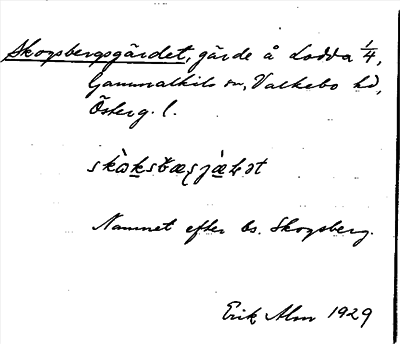 Skogsbergsgärdet, gärde å Lodda 1/4,
Gammalkils sn, Valkebo hd,
Österg. l.
Namnet efter bs. Skogsberg.
Erik Alm 1929